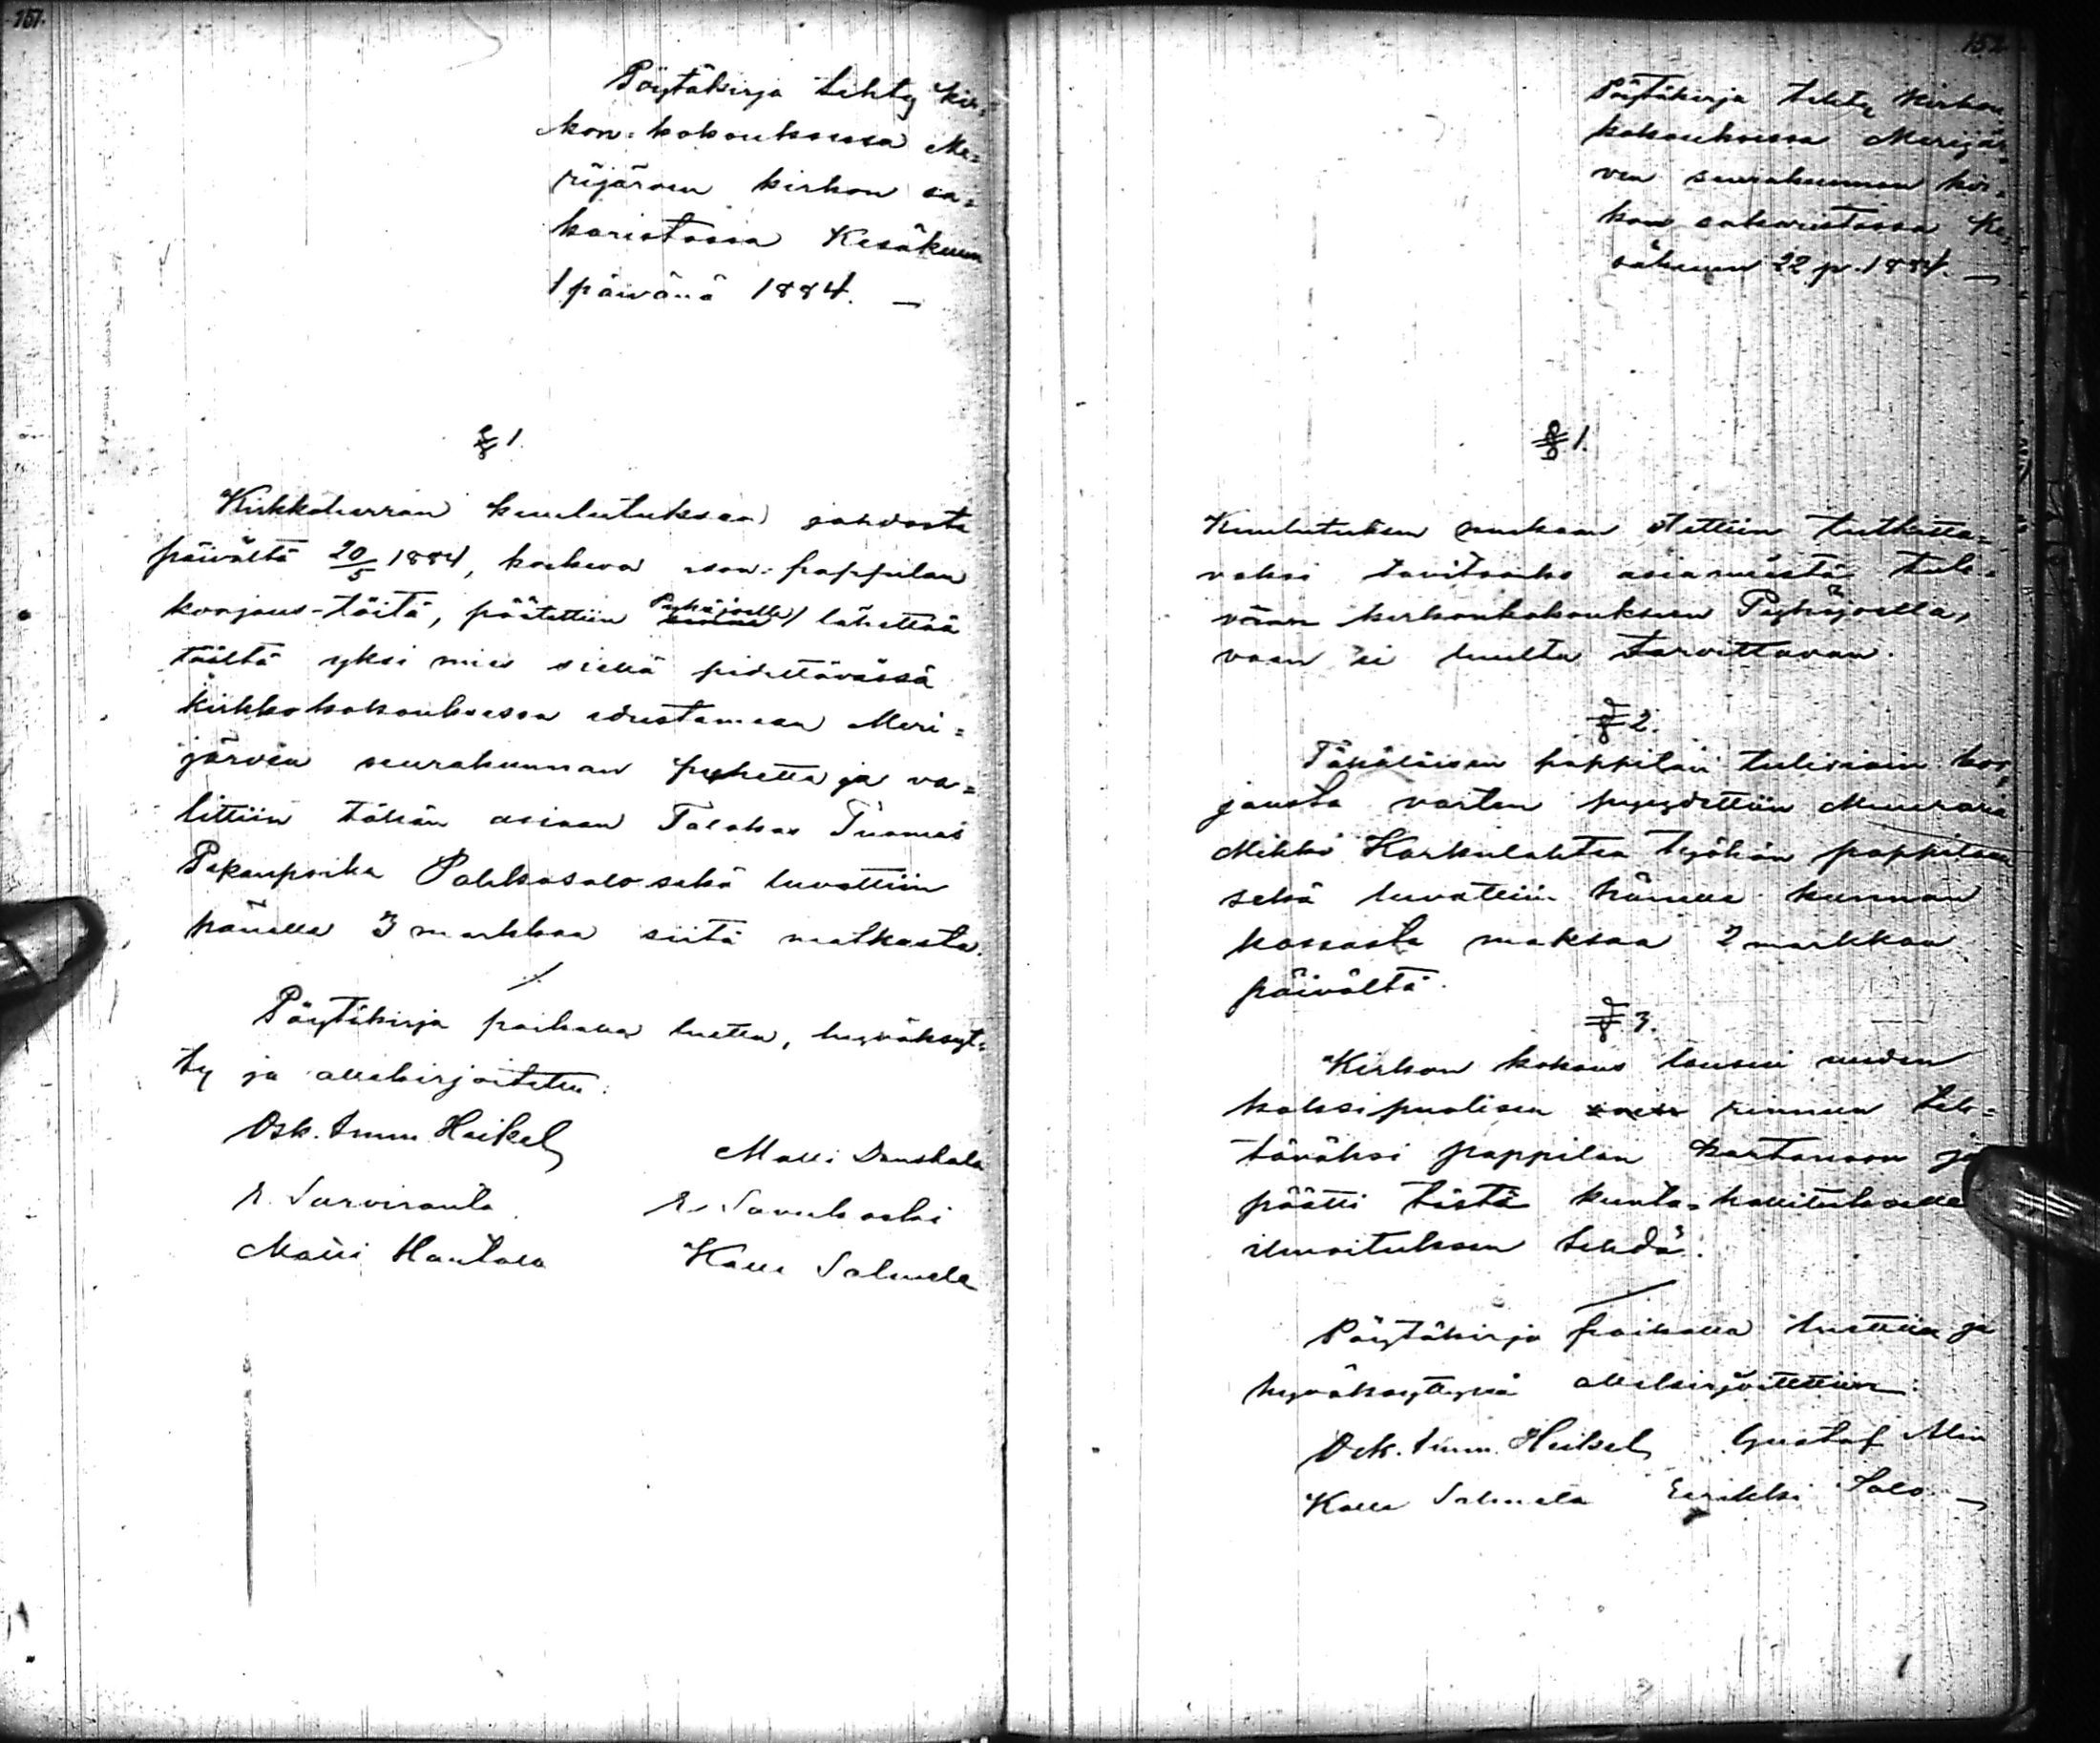 151.
Pöytäkirja tehty kir=
kon=kokouksessa Me=
rijärven kirkon sa=
karistossa Kesäkuun
1 päivänä 1884. —
§ 1.
Kirkkoherran kuulutuksen johdosta
päivältä 20/5 1884, koskeva ison=pappilan
korjaus-töitä, päätettiin Pyhäjoelle lähettää
täältä yksi mies siellä pidettävässä
kirkkokokouksessa edustamaan Meri=
järven seurakunnan puhetta ja va=
littiin tähän asiaan Talokas Tuomas
Pekanpoika Pahkasalo sekä luvattiin
hänelle 3 markkaa siitä matkasta.
Pöytäkirja paikalla luettu, hyväksyt=
ty ja allekirjoitettu:
Osk. Imm. Heikel
Matti
E. Sarviranta
E.
Matti Hautala
Kalle Salmela
152
Pöytäkirja tehty Kirkon
kokouksessa Merijär=
ven seurakunnan kir=
kon sakaristossa Ke=
säkuun 22 p. 1884. —
§ 1.
Kuulutuksen mukaan otettiin tutkitta=
vaksi tarvitaanko asiamiestä tule=
vaan kirkonkokoukseen Pyhäjoella,
vaan ei luultu tarvittavan.
§ 2.
Tämäläisen pappilan tulisiain kor=
jausta varten pyydettiin Muuraria
Mikki Karkulahtea työhön pappilaan
sekä luvattiin hänelle kunnan
kassasta maksaa 2 markkaa
päivältä.
§ 3.
Kirkon kokous lausui uuden
kaksipuolisen rinnun teh=
täväksi pappilan kartanoon ja
päätti tästä kunta=hallitukselle
ilmoituksen tehdä.
Pöytäkirja paikalla luettiin ja
hyväksyttynä allekirjoitettiin:
Osk. Imm. Heikel Gustaf
Kalle Salmela Eerikki Salo —